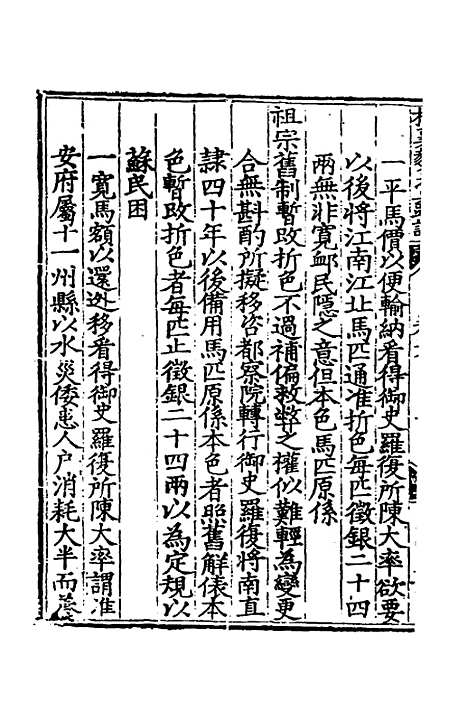 一平馬價以便輸納看得御史羅復所陳大率欲要
以後將江南江北馬匹通准折色每匹徵銀二十四
兩無非寬卹民隱之意但本色馬匹原係
祖宗舊制暫改折色不過補偏救弊之權似難輕為變更
合無斟酌所擬移咨都察院轉行御史羅復將南直
隷四十年以後備用馬匹原係本色者照舊解俵本
色暫改折色者每匹止徵銀二十四兩以為定規以
蘇民困
一寬馬額以還逃移看得御史羅復所陳大率謂淮
安府屬十一州縣以水災倭患人户消耗大半而養